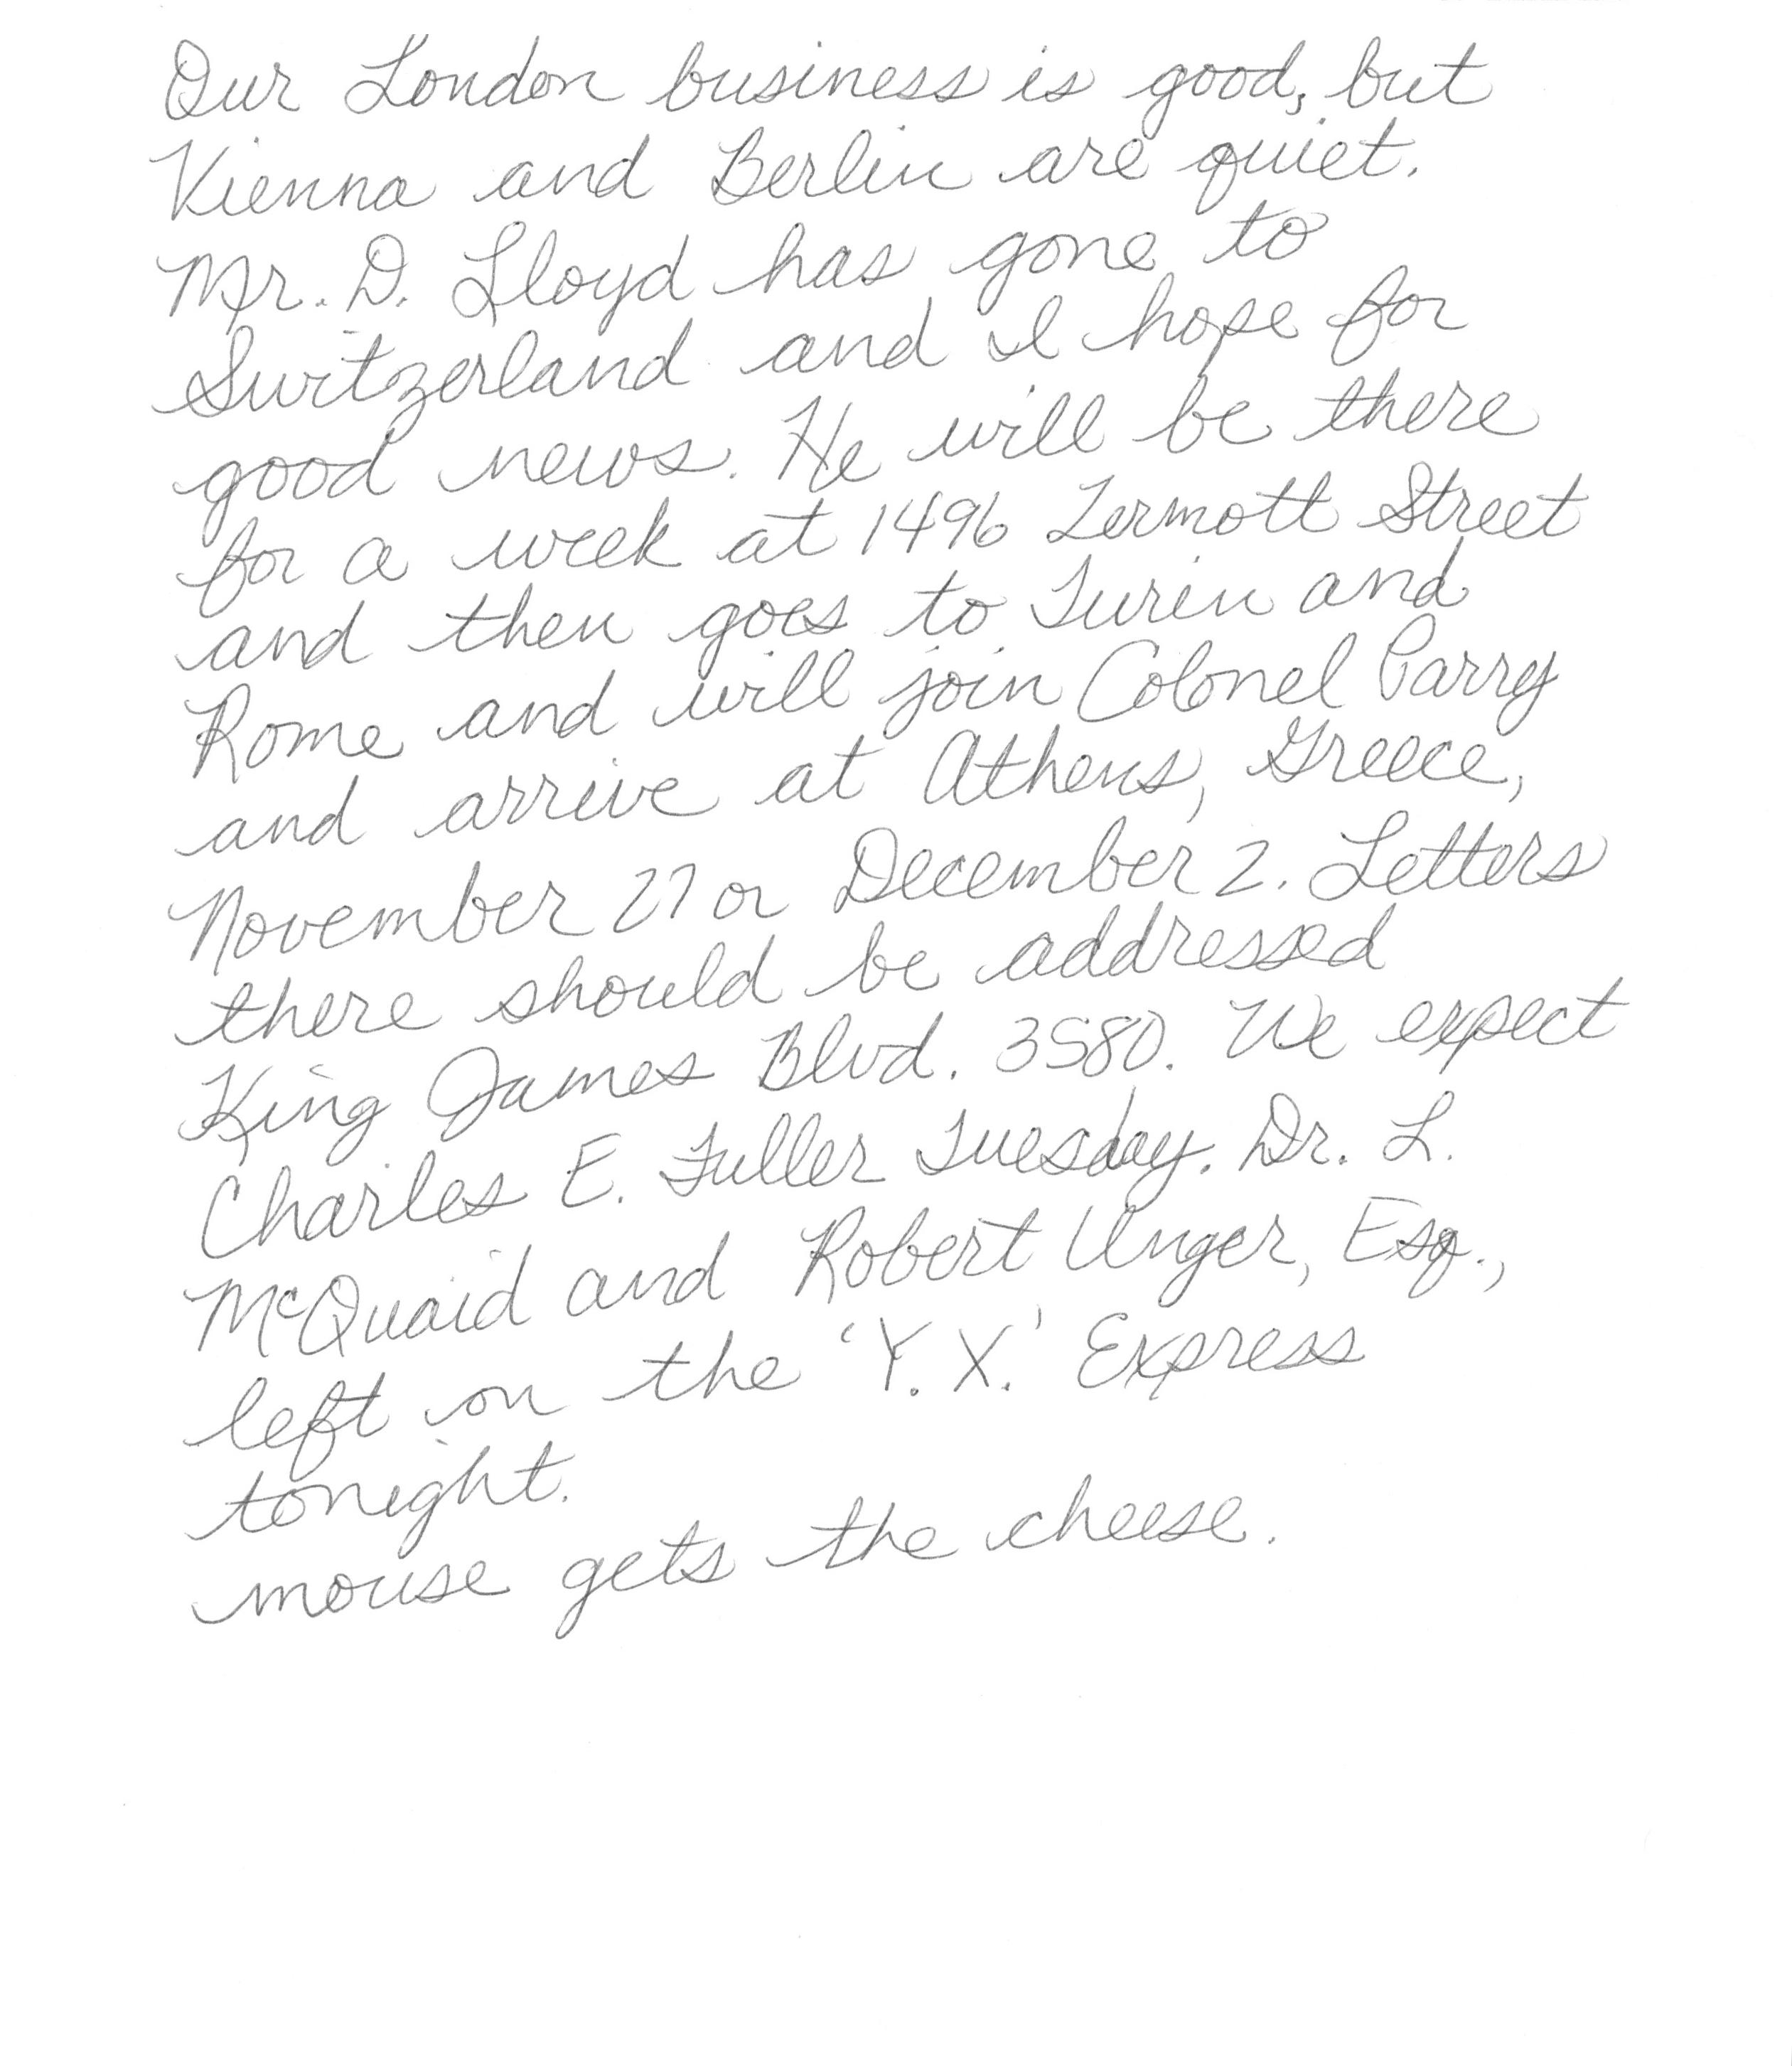 Our London business is good, but
Vienna and Berlin are quiet.
Mr. D. Lloyd has gone to
Switzerland and I hope for
good news. He will be there
for a week at 1496 Zermott Street
and then goes to Turin and
Rome and will join Colonel Parry
and arrive at Athens, Greece,
November 27 or December 2. Letters
there should be addressed
King James Blvd. 3580. We expect
Charles E. Fuller Tuesday. Dr. L.
McQuaid and Robert Unger, Esq.,
left on the 'Y.X.' Express
tonight.
mouse gets the cheese.